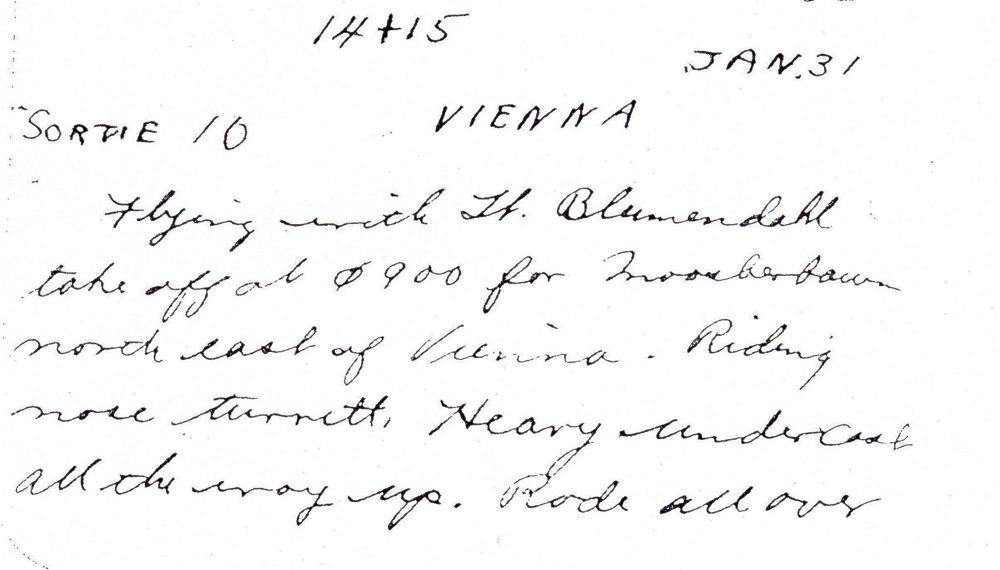 14+15
JAN. 31
SORTIE 10 VIENNA
Flying with Lt. Blumendahl
take off at 0900 for Moosberbaum
north east of Vienna. Riding
nose turrett. Heavy undercast
all the way up. Rode all over